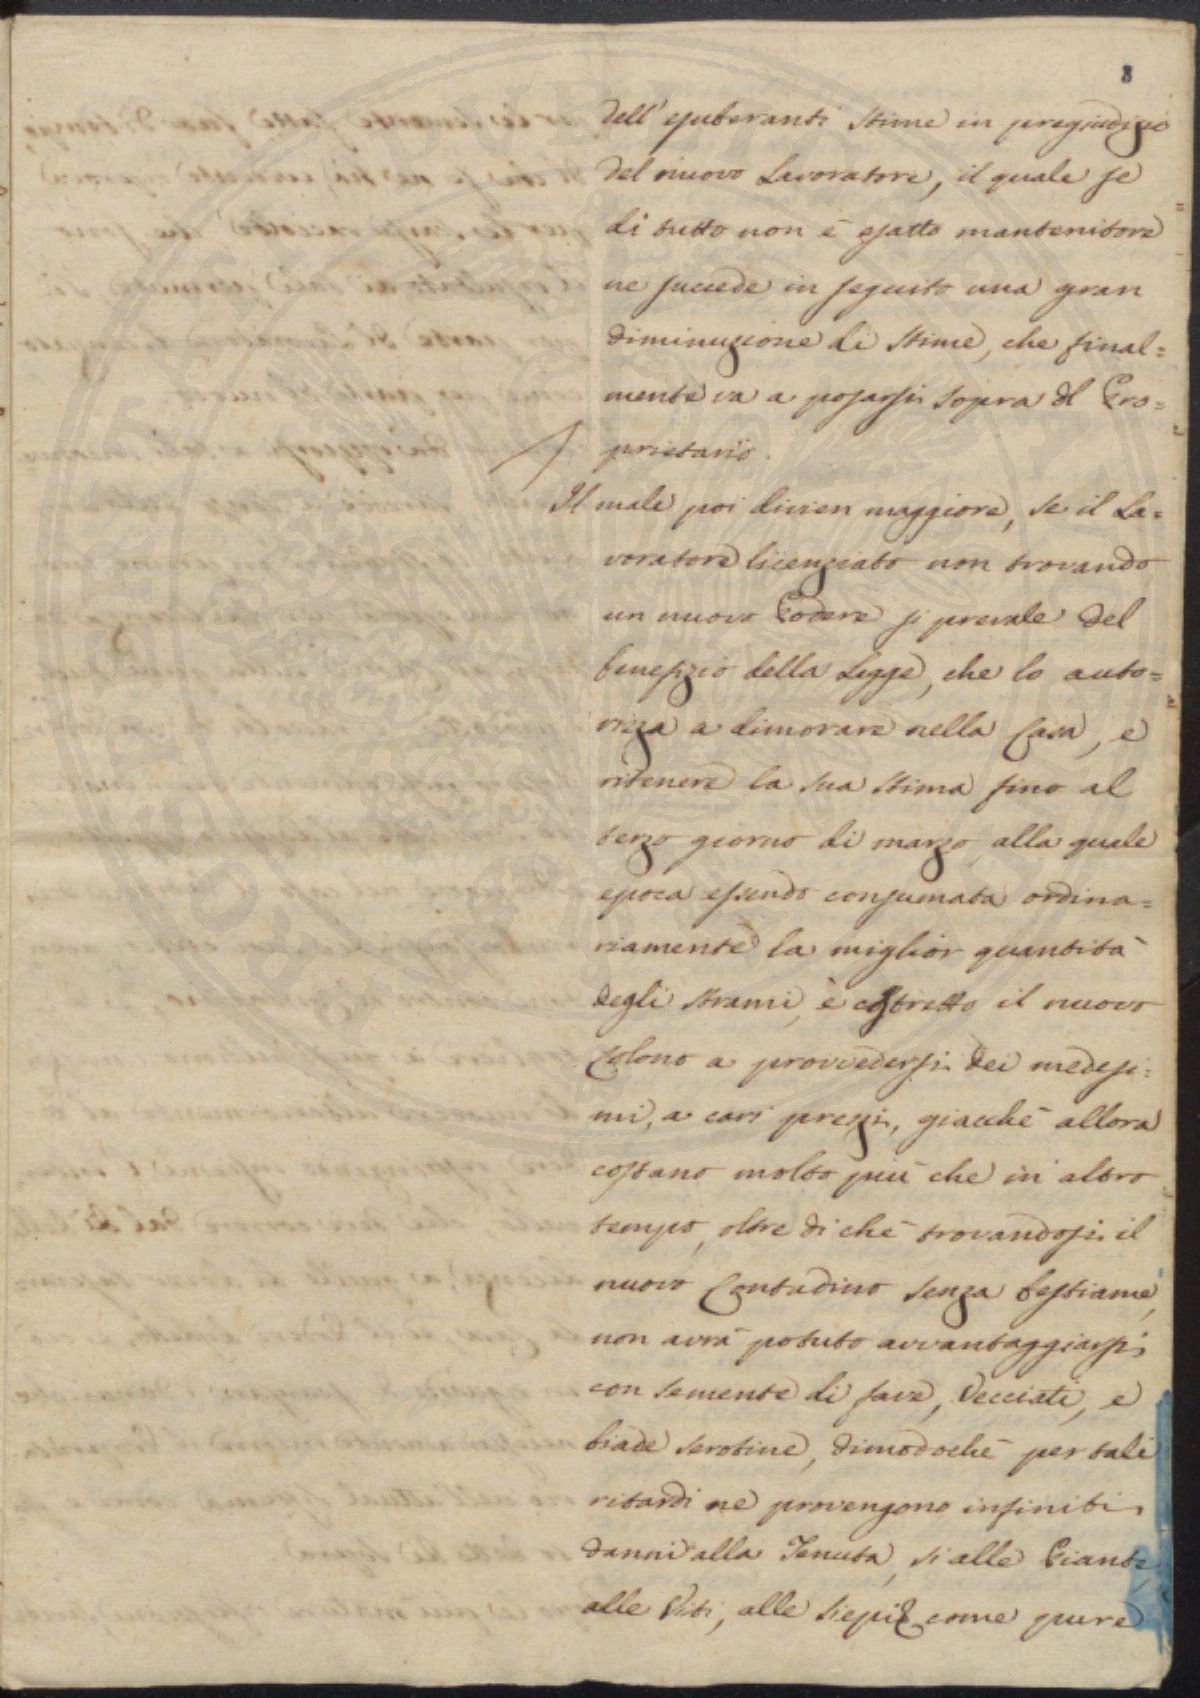 8
dell'esuberanti stime in pregiudizio
del nuovo Lavoratore, il quale se
di tutto non è esatto mantenitore
ne succede in seguito una gran
diminuzione di stime, che final=
mente va a posarsi sopra il Pro=
prietario.
Il male poi divien maggiore, se il La=
voratore licenziato non trovando
un nuovo Podere si prevale del
benefizio della Legge, che lo auto=
rizza a dimorare nella Casa, e
ritenere la sua stima fino al
terzo giorno di marzo, alla quale
epoca essendo consumata ordina=
riamente la miglior quantità
degli strami, è costretto il nuovo
Colono a provvedersi dei medesi=
mi, a cari prezzi, giacchè allora
costano molto più che in altro
tempo, oltre di che trovandosi il
nuovo Contadino senza bestiame,
non avrà potuto avvantaggiarsi
con semente di fave, Vecciati, e
biade serotine, dimodochè per tali
ritardi ne provengono infiniti
danni alla Tenuta, si alle Piante,
alle Viti, alle siepi come pure